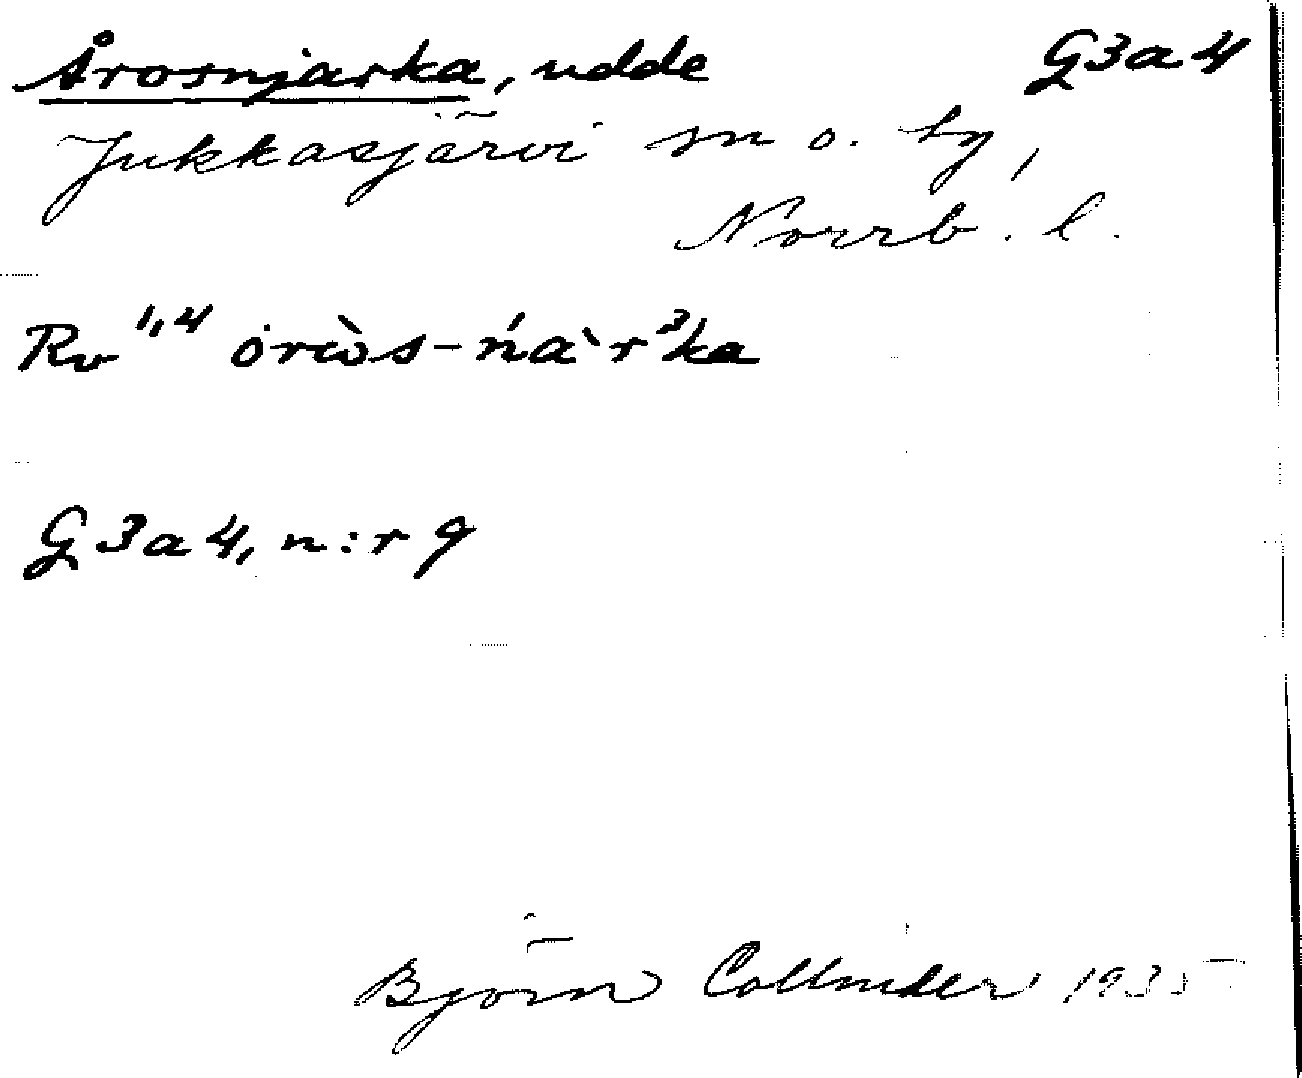 Årosnjarka, udde G3a4
Jukkasjärvi sn o. by,
Norrb. l.
Rv 1,4 óròs-ńa`r³ka
G3a4, n:r 9
Björn Collinder 1935